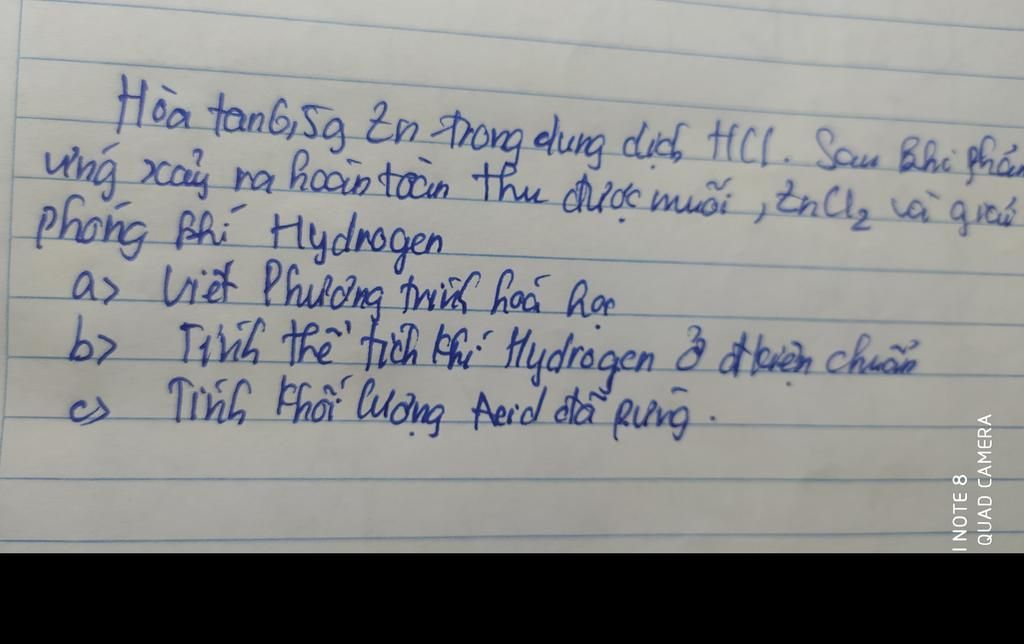 Hòa tan 6,5g Zn trong dung dịch HCl. Sau khi phản
ứng xảy ra hoàn toàn thu được muối, ZnCl₂ và giải
phóng khí Hydrogen
a> Viết Phương trình hoá học
b> Tính thể tích khí Hydrogen ở đkiện chuẩn
c> Tính khối lượng Acid đã pưng.
I NOTE 8
QUAD CAMERA